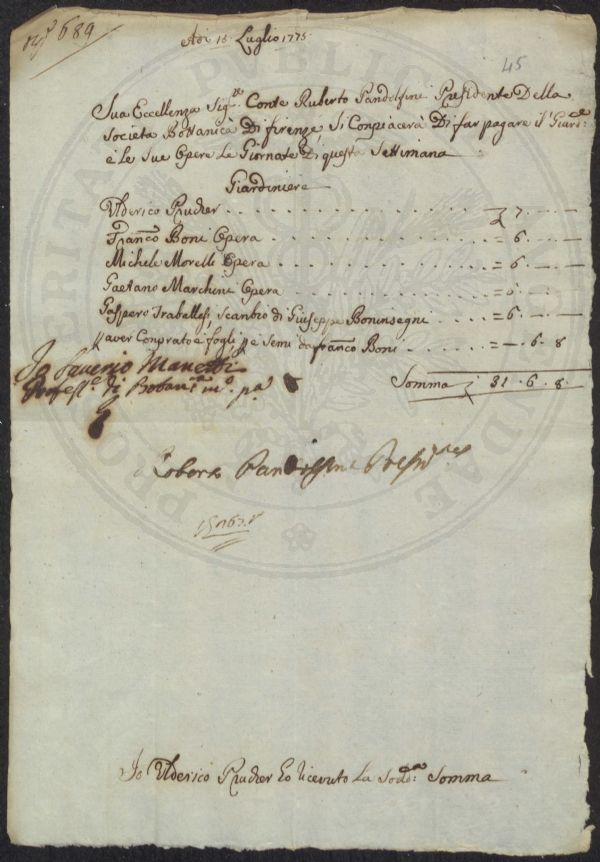 689
45
Adì 15 Luglio 1775
Sua Eccellenza Sig.re Conte Ruberto Pandolfini Presidente Della
Società Bottanica Di firenze, Si Conpiacerà Di far pagare il Giard.e
e le Sue Opere Le Giornate Di questa Settimana
Giardiniere
Ulderico Prucher . . . . . . . . . . . . £ 7 . — . —
Franc.co Boni Opera . . . . . . . . . . = 6 . — . —
Michele Morelli Opera . . . . . . . . . . = 6 . — . —
Gaetano Marchini Opera . . . . . . . . . . = 6 . — . —
Gaspero Traballesi Scanbio di Giuseppe Boninsegni . . . . = 6 . — . —
p aver Conprato è fogli p è Semi da franco Boni . . . . = — . 6 . 8
Somma £ 31 . 6 . 8 .
Io Saverio Manetti
Profess.e di Botan.ca m.o p.a
Roberto Pandolfini Presid.te
Io Ulderico Prucher ho ricevuto La Sod.a Somma
PRO PUBLICA